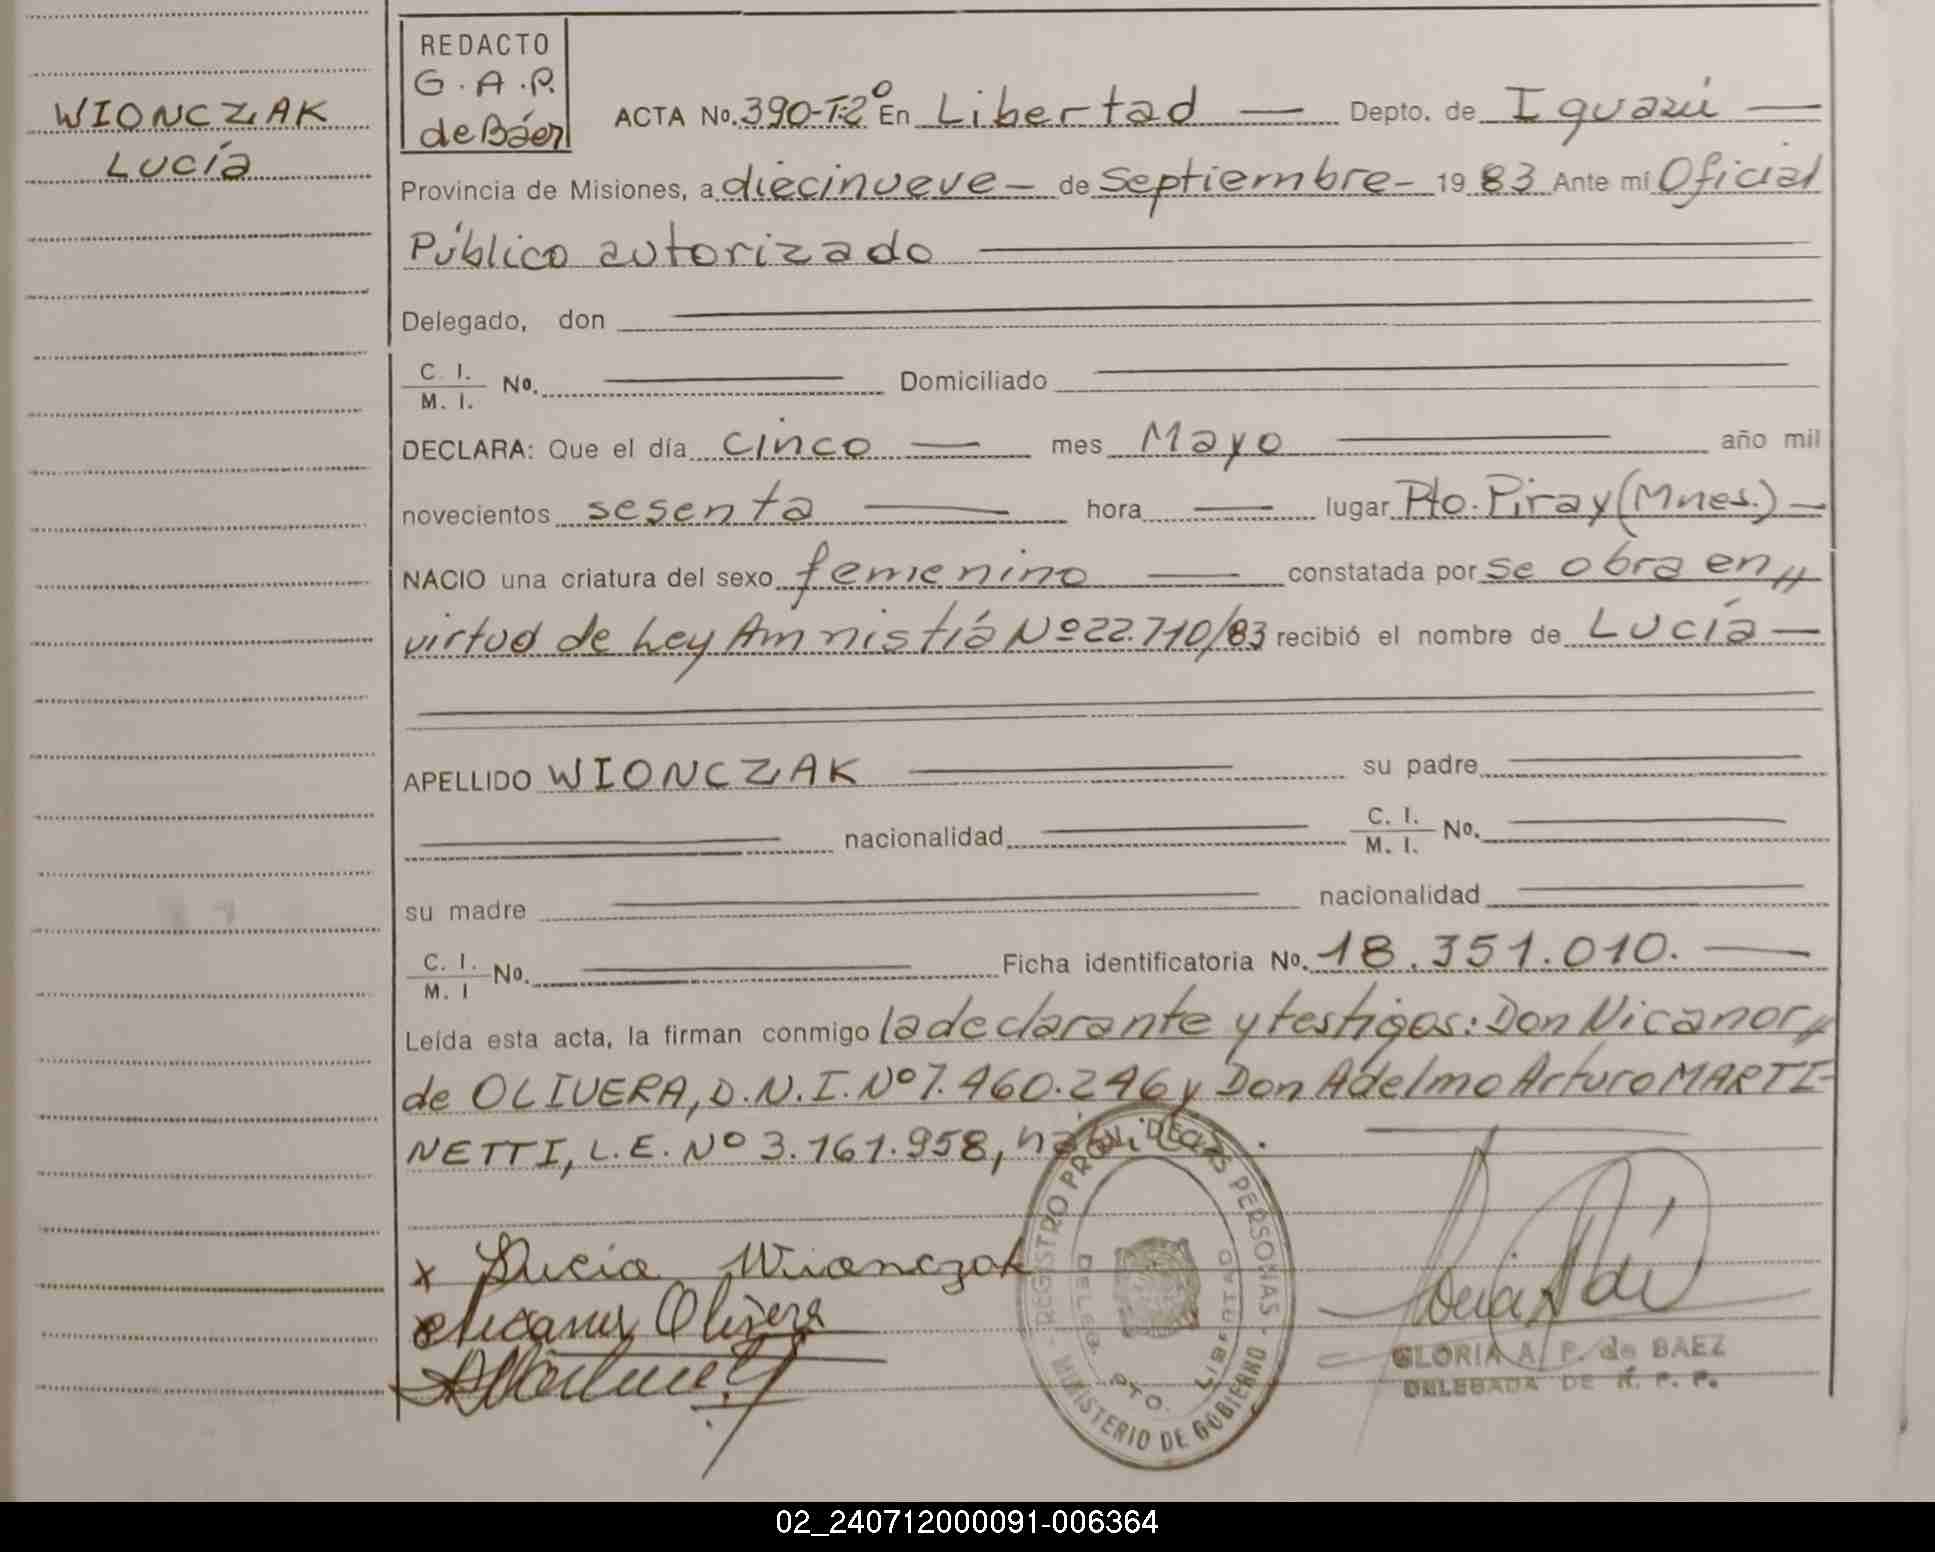 WIONCZAK
Lucía
REDACTO
G.A.P.
de Báez
ACTA No. 390-T-2º En Libertad — Depto. de Iguazú —
Provincia de Misiones, a diecinueve — de Septiembre - 19 83 Ante mí Oficial
Público autorizado
Delegado, don
C. I.
M. I. No. Domiciliado
DECLARA: Que el día cinco — mes Mayo — año mil
novecientos sesenta — hora — lugar Pto. Piray (Mnes.) —
NACIO una criatura del sexo femenino — constatada por se obra en //
virtud de Ley Amnistiá Nº 22.710/83 recibió el nombre de Lucía —
APELLIDO WIONCZAK — su padre
nacionalidad C. I.
M. I. No.
su madre nacionalidad
C. I.
M. I No. Ficha identificatoria No. 18.351.010. —
Leída esta acta, la firman conmigo la declarante y testigos: Don Nicanor //
de OLIVERA, D.N.I. Nº 7.460.246 y Don Adelmo Arturo MARTI-
NETTI, L.E. Nº 3.161.958,
x Lucia Wionczak
x Nicanor Olivera
REGISTRO PROV. DE LAS PERSONAS
MINISTERIO DE GOBIERNO
DELEG.
PTO. LIBERTAD
GLORIA A. P. de BAEZ
DELEGADA DE R. P. P.
02_240712000091-006364